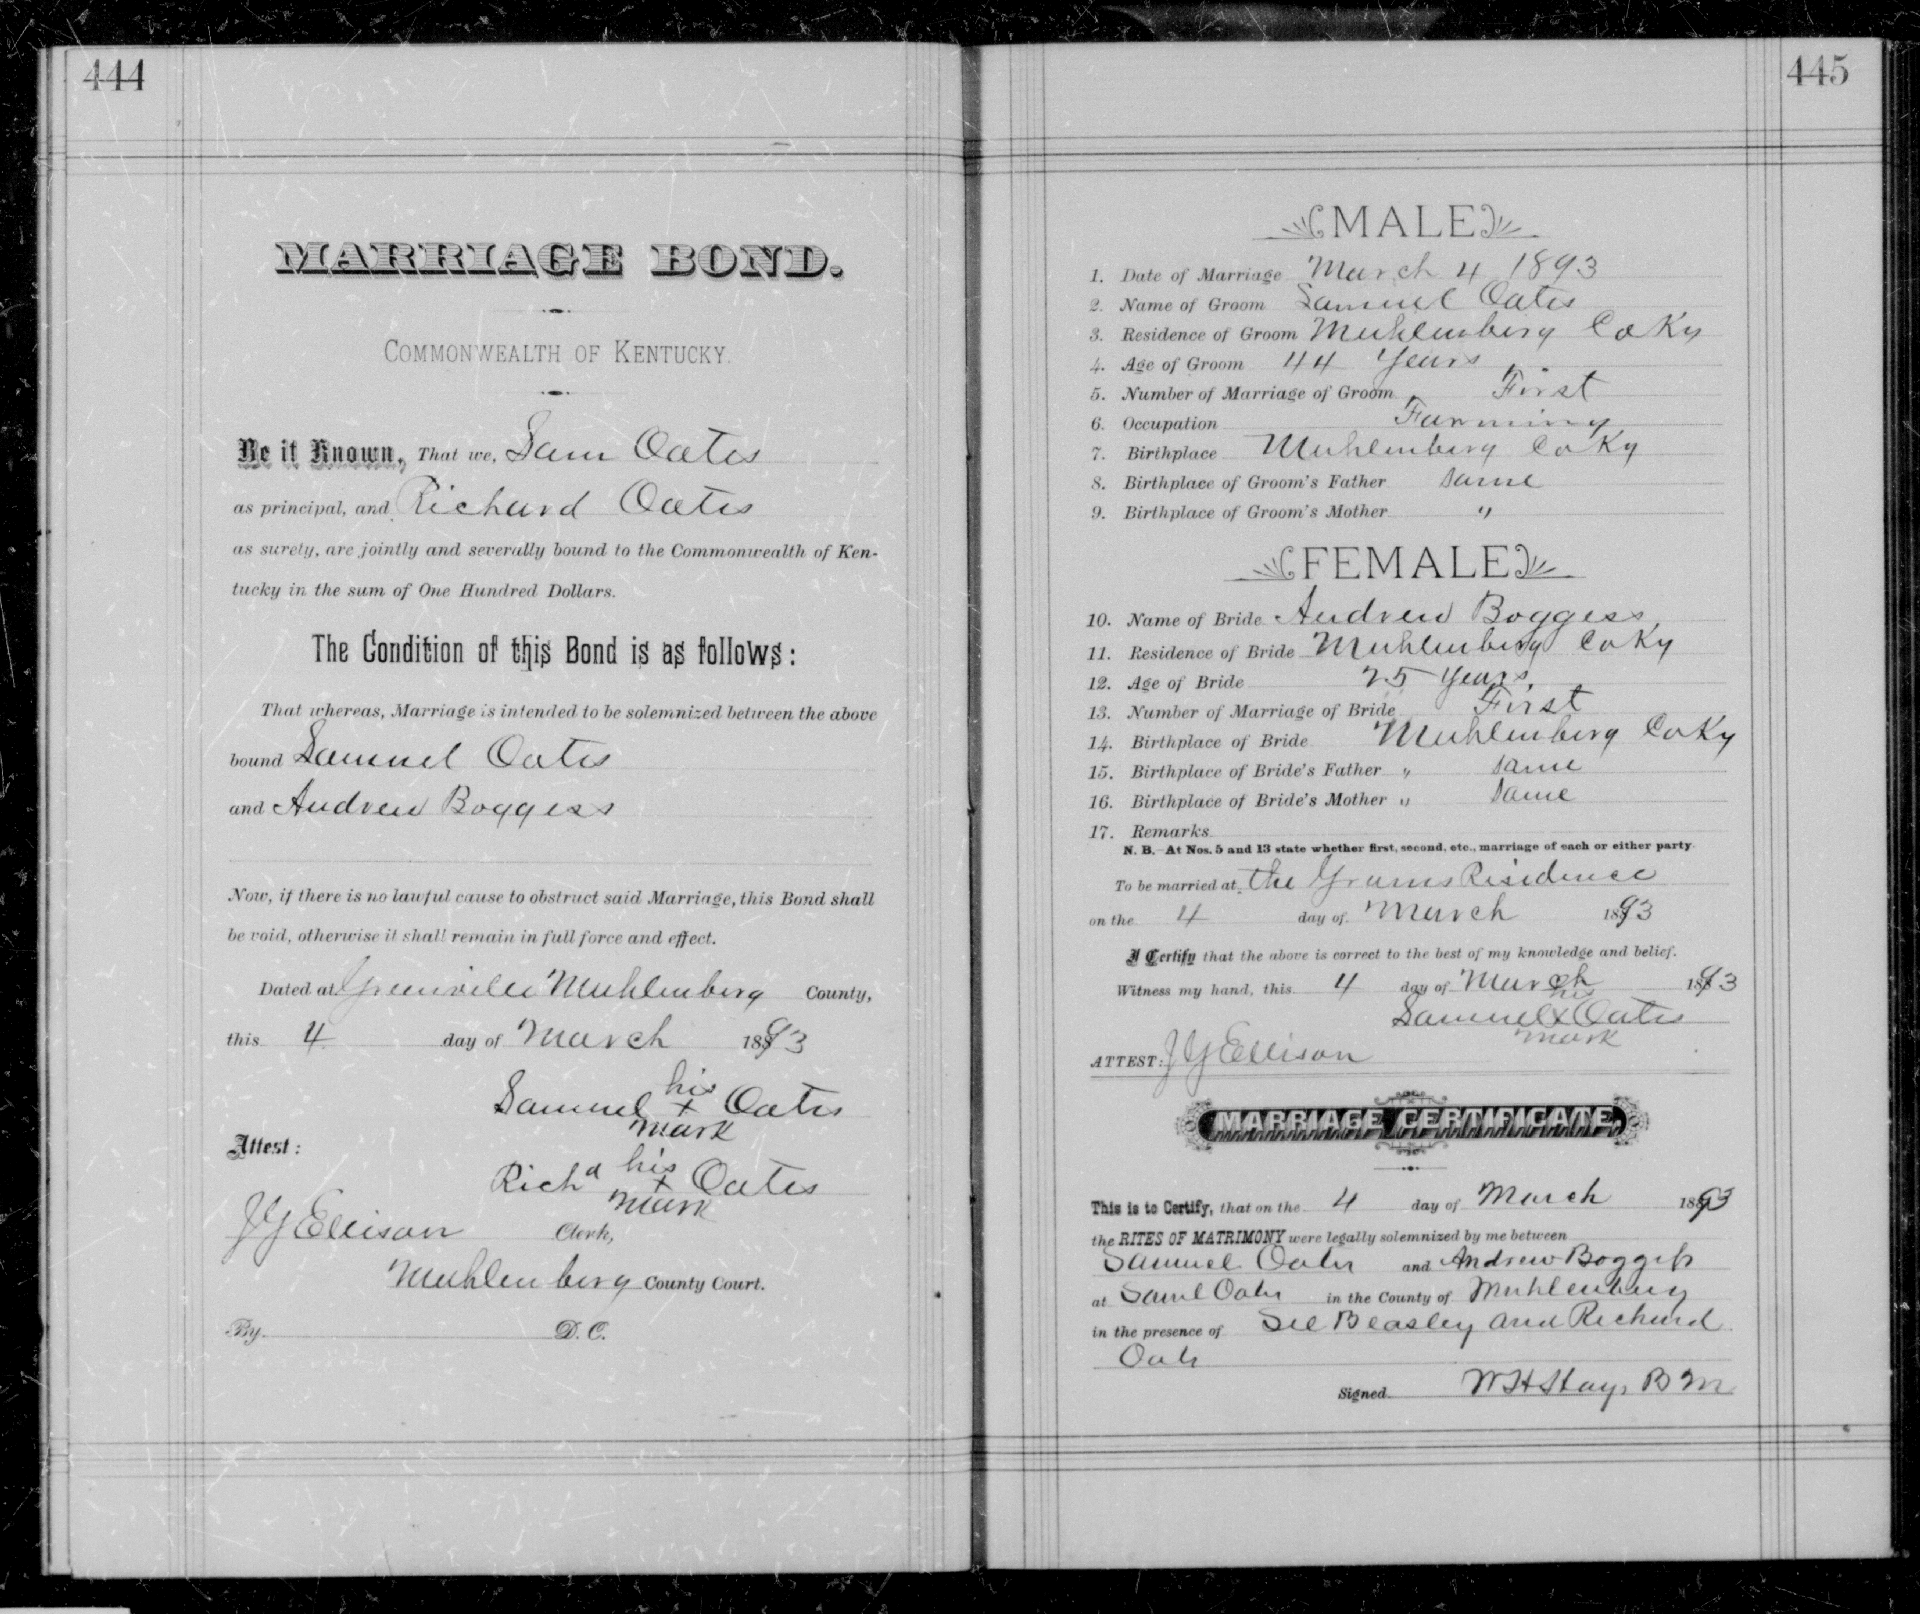 444
MARRIAGE BOND.
COMMONWEALTH OF KENTUCKY.
Be it Known, That we, Sam Oates
as principal, and Richard Oates
as surety, are jointly and severally bound to the Commonwealth of Ken-
tucky in the sum of One Hundred Dollars.
The Condition of this Bond is as follows:
That whereas, Marriage is intended to be solemnized between the above
bound Samuel Oates
and Andrew Boggess
Now, if there is no lawful cause to obstruct said Marriage, this Bond shall
be void, otherwise it shall remain in full force and effect.
Dated at Greenville Muhlenberg County,
this 4 day of March 1893
his
Samuel x Oates
mark
Attest:
his
Richd x Oates
mark
J G Ellison Clerk,
Muhlenberg County Court.
By D. C.
445
MALE
1. Date of Marriage March 4 1893
2. Name of Groom Samuel Oates
3. Residence of Groom Muhlenberg Co Ky
4. Age of Groom 44 Years
5. Number of Marriage of Groom First
6. Occupation Farming
7. Birthplace Muhlenberg Co Ky
8. Birthplace of Groom's Father Same
9. Birthplace of Groom's Mother "
FEMALE
10. Name of Bride Andrew Boggess
11. Residence of Bride Muhlenberg Co Ky
12. Age of Bride 25 Years
13. Number of Marriage of Bride First
14. Birthplace of Bride Muhlenberg Co Ky
15. Birthplace of Bride's Father " Same
16. Birthplace of Bride's Mother " Same
17. Remarks
N. B.—At Nos. 5 and 13 state whether first, second, etc., marriage of each or either party.
To be married at the Grooms Residence
on the 4 day of March 1893
I Certify that the above is correct to the best of my knowledge and belief.
Witness my hand, this 4 day of March 1893
his
Samuel x Oates
mark
ATTEST: J G Ellison
MARRIAGE CERTIFICATE.
This is to Certify, that on the 4 day of March 1893
the RITES OF MATRIMONY were legally solemnized by me between
Samuel Oates and Andrew Boggess
at Saml Oates in the County of Muhlenberg
in the presence of Beasley and Richard
Oats
Signed. W H Hays B M